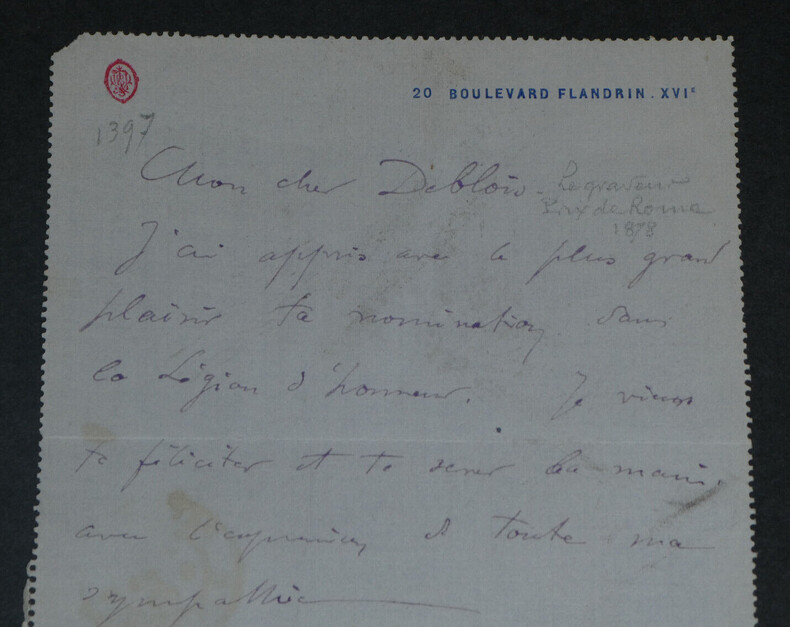 20 BOULEVARD FLANDRIN. XVIE
1397
Mon cher Deblois -
Le graveur
Prix de Rome
1878
J'ai appris avec le plus grand
plaisir ta nomination dans
la Légion d'honneur. Je viens
te féliciter et te serrer la main
avec l'expression de toute ma
sympathie